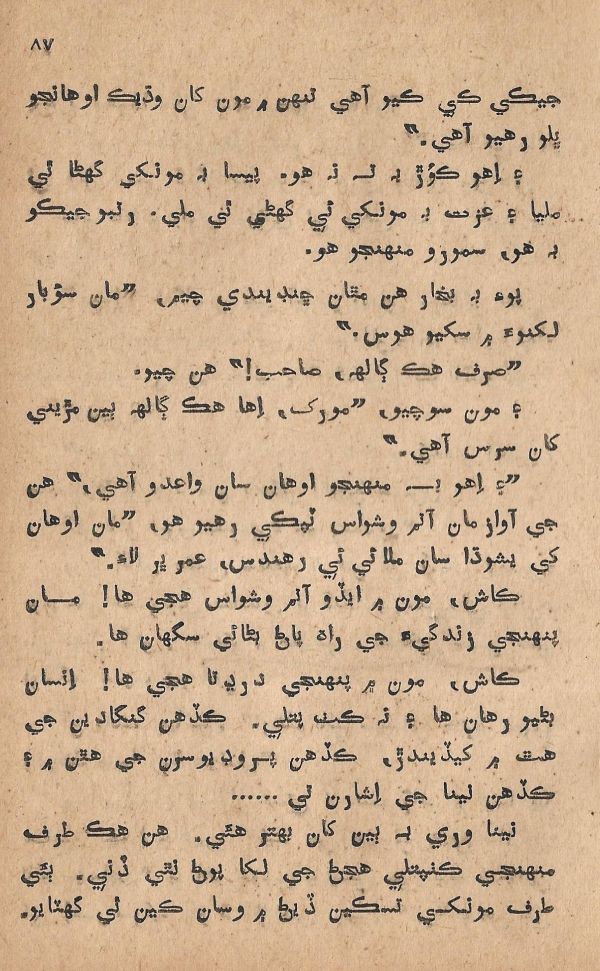 ۸۷
جيڪي ڪي ڪيو آهي تنهن ۾ مون کان وڌيڪ اوهانجو
ڀلو رهيو آهي.“
۽ اِهو ڪُوڙ به نہ هو. پيسا به مونکي گهڻا ئي
مليا ۽ عزت به مونکي ئي گهڻي ئي ملي. رتبو جيڪو
به هو، سمورو منهنجو هو.
پوءِ به بخار هن مٿان ڇنڊيندي چيم، ”مان سؤ بار
لکنوءَ ۾ سکيو هوس.“
”صرف هڪ ڳالهه، صاحب!“ هن چيو.
۽ مون سوچيو، ”مورک، اِها هڪ ڳالهه ٻين مڙيني
کان سرس آهي.“
”۽ اِهو به منهنجو اوهان سان واعدو آهي،“ هن
جي آواز مان آتم وشواس ٽپڪي رهيو هو، ”مان اوهان
کي يشوڌا سان ملائي ئي رهندس، عمر ڀر لاءِ.“
ڪاش، مون ۾ ايڏو آتم وشواس هجي ها! مان
پنهنجي زندگيءَ جي راه پاڻ بڻائي سگهان ها.
ڪاش، مون ۾ پنهنجي درڍتا هجي ها! اِنسان
بڻيو رهان ها ۽ نہ ڪٺ پتلي. ڪڏهن گنگادين جي
هٿ ۾ کيڏيندڙ، ڪڏهن پروڊيوسرن جي هٿن ۾ ۽
ڪڏهن نينا جي اِشارن تي ......
نينا وري به ٻين کان بهتر هئي. هن هڪ طرف
منهنجي ڪٺپتلي هجڻ جي لڪا پوڻ نٿي ڏني. ٻئي
طرف مونکي تسڪين ڏيڻ ۾ وسان ڪين ٿي گهٽايو.